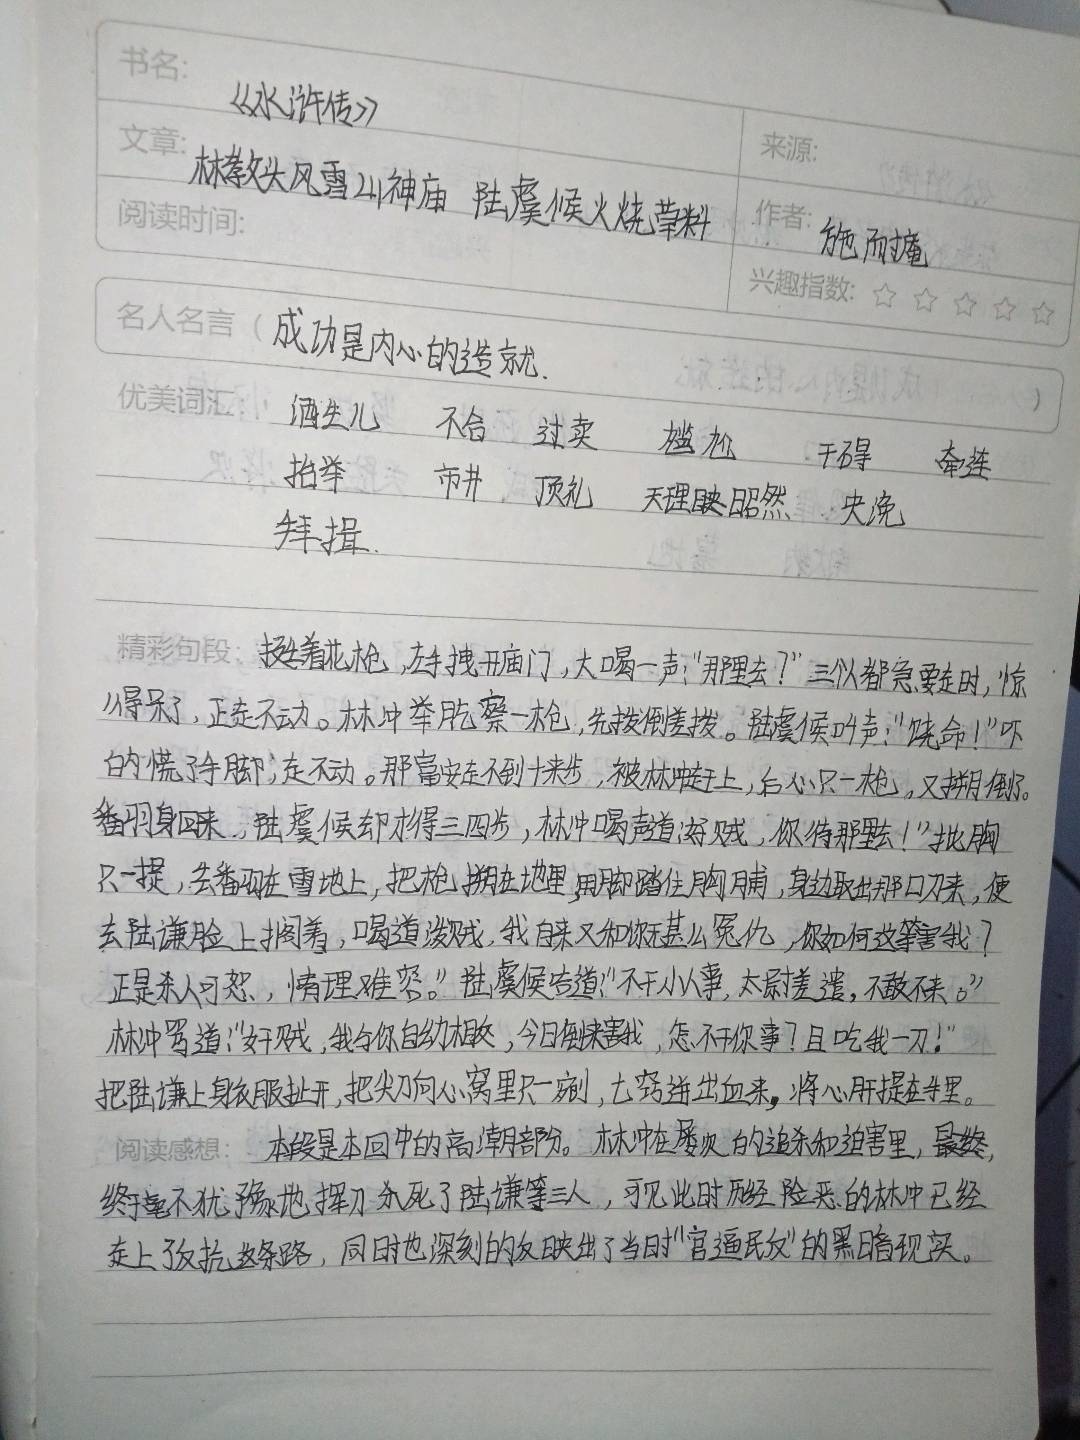 书名:
《水浒传》
来源:
文章: 林教头风雪山神庙 陆虞候火烧草料
作者: 施耐庵
阅读时间:
兴趣指数: ☆ ☆ ☆ ☆ ☆
名人名言 ( 成功是内心的造就. )
优美词汇 酒生儿 不合 过卖 尴尬 干碍 牵连
抬举 市井 顶礼 天理昭然 央浼
拜揖.
精彩句段: 挺着花枪,左手拽开庙门,大喝一声:"那里去?"三个人都急要走时,惊
得呆了,正走不动。林冲举肐察一枪,先拨倒差拨。陆虞候叫声:"饶命!"吓
的慌了手脚,走不动。那富安走不到十来步,被林冲赶上,后心只一枪,又搠倒了。
翻身回来,陆虞候却才行得三四步,林冲喝声道:"好贼,你待那里去!"批胸
只一提,丢翻在雪地上,把枪搠在地里,用脚踏住胸脯,身边取出那口刀来,便
去陆谦脸上搁着,喝道:"泼贼,我自来又和你无甚么冤仇,你如何这等害我?
正是杀人可恕,情理难容。"陆虞候告道:"不干小人事,太尉差遣,不敢不来。"
林冲骂道:"奸贼,我与你自幼相交,今日倒来害我,怎不干你事?且吃我一刀!"
把陆谦上身衣服扯开,把尖刀向心窝里只一剜,七窍迸出血来,将心肝提在手里。
阅读感想: 本段是本回中的高潮部分。林冲在屡次的追杀和迫害里,最终,
终于毫不犹豫地挥刀杀死了陆谦等三人,可见此时历经险恶的林冲已经
走上了反抗这条路,同时也深刻的反映出了当时"官逼民反"的黑暗现实。